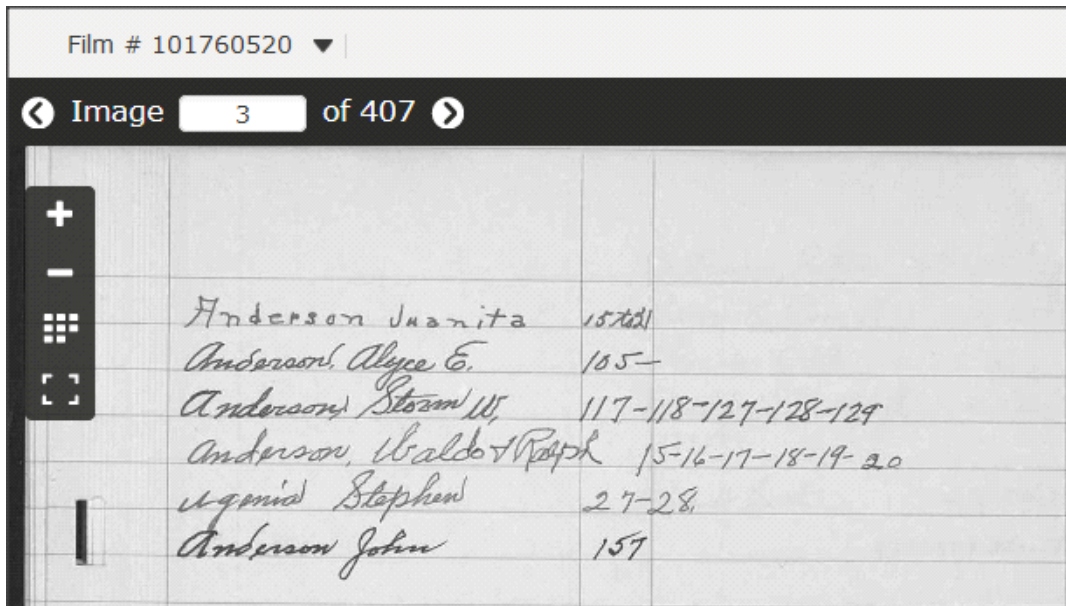 Film # 101760520
Image 3 of 407
Anderson Juanita 15 to 21
Anderson, Alyce E. 105-
Anderson, Storm W. 117-118-127-128-129
Anderson, Waldo + Ralph 15-16-17-18-19-20
Stephen 27-28
Anderson John 157